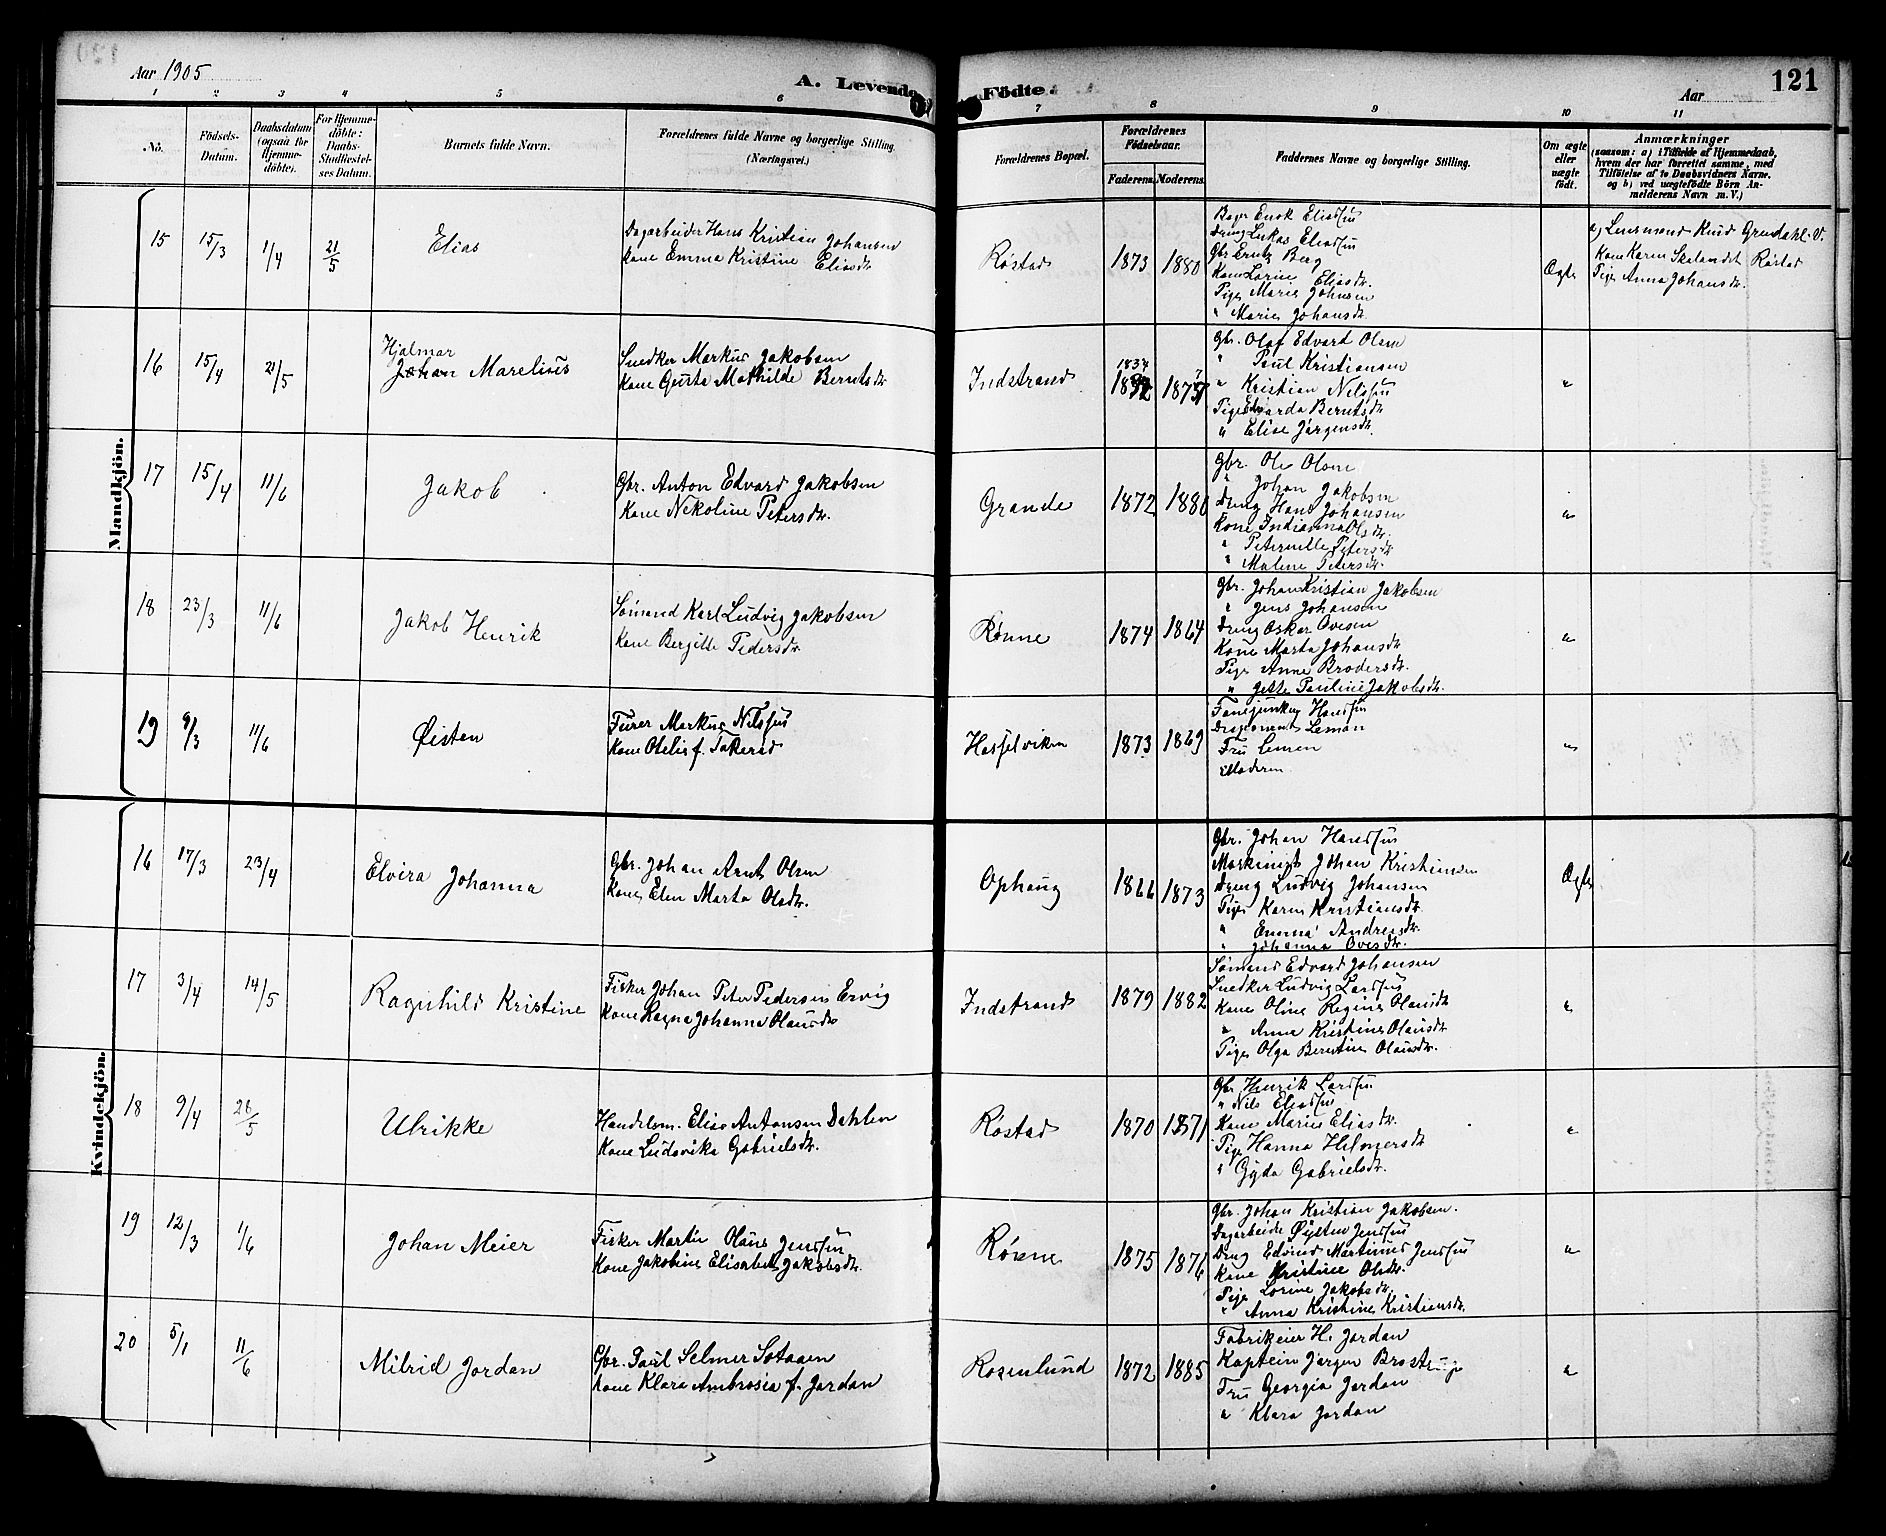 Aar 1905
A. Levende Födte.
Aar
121
1 2 3 4 5 6 7 8 9 10 11
No.
Födsels-Datum.
Daabsdatum (ogsaa for Hjemmedöbte).
For Hjemmedöbte: Daabs-Stadfæstelses Datum.
Barnets fulde Navn.
Forældrenes fulde Navne og borgerlige Stilling. (Næringsvei.)
Forældrenes Bopæl.
Forældrenes Födselsaar.
Faderens. Moderens.
Faddernes Navne og borgerlige Stilling.
Om ægte eller uægte födt.
Anmærkninger
(saasom: a) i Tilfælde af Hjemmedaab, hvem der har forrettet samme, med Tilföielse af to Daabsvidners Navne. og b) ved uægtefödte Börn Anmelderens Navn m. V.)
Mandkjön.
15 15/3 1/4 21/5 Elias
Dagarbeider Hans Kristian Johansen
Kone Emma Kristine Eliasdr.
Røstad 1873 1880
Elias Eliassen
Dreng Lukas Eliassen
Gbr. Berg
Kone Lorine Eliasdr.
Pige Marie Johnsen
" Marie Johansdr.
Ægte
a) Lensmand Knud Grendahl.
Kone Karen Røstad
Pige Anna Johansdr.
16 15/4 21/5 Hjalmar
Johan Marelius
Snedker Markus Jakobsen
Kone Gusta Mathilde Berntsdr
Indstrand 1834 1875
Gbr. Olaf Edvard Olsen
" Paul Kristiansen
" Kristian Nilssen
Pige Edvarda Berntsdr
" Elise Jørgensdr.
"
17 15/4 11/6 Jakob
Gbr. Anton Edvard Jakobsen
Kone Nekoline Petersdr.
Grande 1872 1880
Gbr. Ole Olsen
" Johan Jakobsen
Dreng Hans Johansen
Kone Indianna Olsdr.
" Peternelle Petersdr
" Malene Petersdr.
"
18 23/3 11/6 Jakob Henrik
Sømand Karl Ludvig Jakobsen
Kone Bergitte Pedersdr.
Rønne 1874 1864
Gbr. Johan Kristian Jakobsen
" Jens Johansen
Dreng Oskar Ovesen
Kone Marta Johansdr
Pige Anne Brodersdr.
" Jette Pauline Jakobsdr.
"
19 9/3 11/6 Øisten
Furer Markus Nilssen
Kone Otelie f. Takersd
Hasselviken 1873 1869
Fanejunker Hanssen
Disponent Leman
Fru Leman
Moderen
"
Kvindekjön.
16 17/3 23/4 Elvira Johanna
Gbr. Johan Arnt Olsen
Kone Elen Marta Olsdr.
Ophaug 1866 1873
Gbr. Johan Hanssen
Maskinist Johan Kristiansen
Dreng Ludvig Johansen
Pige Karen Kristiansdr.
" Emma Andreasdr.
" Johanna Ovesdr.
Ægte
17 3/4 14/5 Ragnhild Kristine
Fisker Johan Peter Pedersen Ervig
Kone Ragna Johanna Olausdr
Indstrand 1879 1882
Sømand Edvard Johansen
Snedker Ludvig Larssen
Kone Oline Regine Olausdr
" Anna Kristine Olausdr
Pige Olga Berntine Olausdr.
"
18 9/4 28/5 Ulrikke
Handelsm. Elias Antonsen Dahlen
Kone Ludovika Gabrielsdr.
Røstad 1870 1871
Gbr Henrik Larssen
" Nils Eliassen
Kone Marie Eliasdr.
Pige Hanna Hilmersdr
" Gyda Gabrielsdr.
"
19 12/3 1/6 Johan Meier
Fisker Martin Olaus Jenssen
Kone Jakobine Elisabet Jakobsdr.
Rønne 1875 1876
Gbr. Johan Kristian Jakobsen.
Dagarbeider Øisten Jenssen
Dreng Edvind Martinus Jenssen
Kone Kristine Olsdr.
Pige Lorine Jakobsdr.
" Anna Kristine Kristiansdr.
"
20 5/1 11/6 Milrid Jordan
Gbr. Paul Selmer Sotaaen
Kone Klara Ambrosia f. Jordan
Rosenlund 1872 1885
Fabrikeier H. Jordan
Kaptein Jørgen Brostrup
Fru Georgia Jordan
" Klara Jordan
"